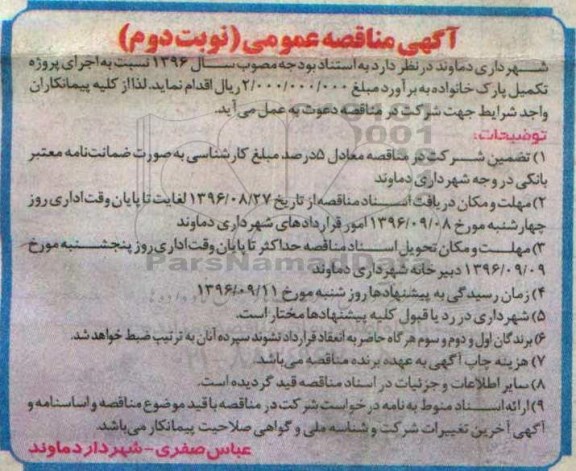 آگهی مناقصه عمومی (نوبت دوم)
شهرداری دماوند در نظر دارد به استناد بودجه مصوب سال ۱۳۹۶ نسبت به اجرای پروژه
تکمیل پارک خانواده به برآورد مبلغ ۲/۰۰۰/۰۰۰/۰۰۰ ریال اقدام نماید. لذا از کلیه پیمانکاران
واجد شرایط جهت شرکت در مناقصه دعوت به عمل می آید.
توضیحات:
۱) تضمین شرکت در مناقصه معادل ۵درصد مبلغ کارشناسی به صورت ضمانت نامه معتبر
بانکی در وجه شهرداری دماوند
۲) مهلت و مکان دریافت اسناد مناقصه از تاریخ ۱۳۹۶/۰۸/۲۷ لغایت تا پایان وقت اداری روز
چهارشنبه مورخ ۱۳۹۶/۰۹/۰۸ امور قراردادهای شهرداری دماوند
۳) مهلت و مکان تحویل اسناد مناقصه حداکثر تا پایان وقت اداری روز پنجشنبه مورخ
۱۳۹۶/۰۹/۰۹ دبیرخانه شهرداری دماوند
ParsNamadData
۴) زمان رسیدگی به پیشنهادها روز شنبه مورخ ۱۳۹۶/۰۹/۱۱
۵) شهرداری در رد یا قبول کلیه پیشنهادها مختار است.
۶) برندگان اول و دوم و سوم هرگاه حاضر به انعقاد قرارداد نشوند سپرده آنان به ترتیب ضبط خواهد شد.
۷) هزینه چاپ آگهی به عهده برنده مناقصه می باشد.
۸) سایر اطلاعات و جزئیات در اسناد مناقصه قید گردیده است.
۹) ارائه اسناد منوط به نامه درخواست شرکت در مناقصه با قید موضوع مناقصه و اساسنامه و
آگهی آخرین تغییرات شرکت و شناسه ملی و گواهی صلاحیت پیمانکار می باشد.
عباس صفری - شهردار دماوند